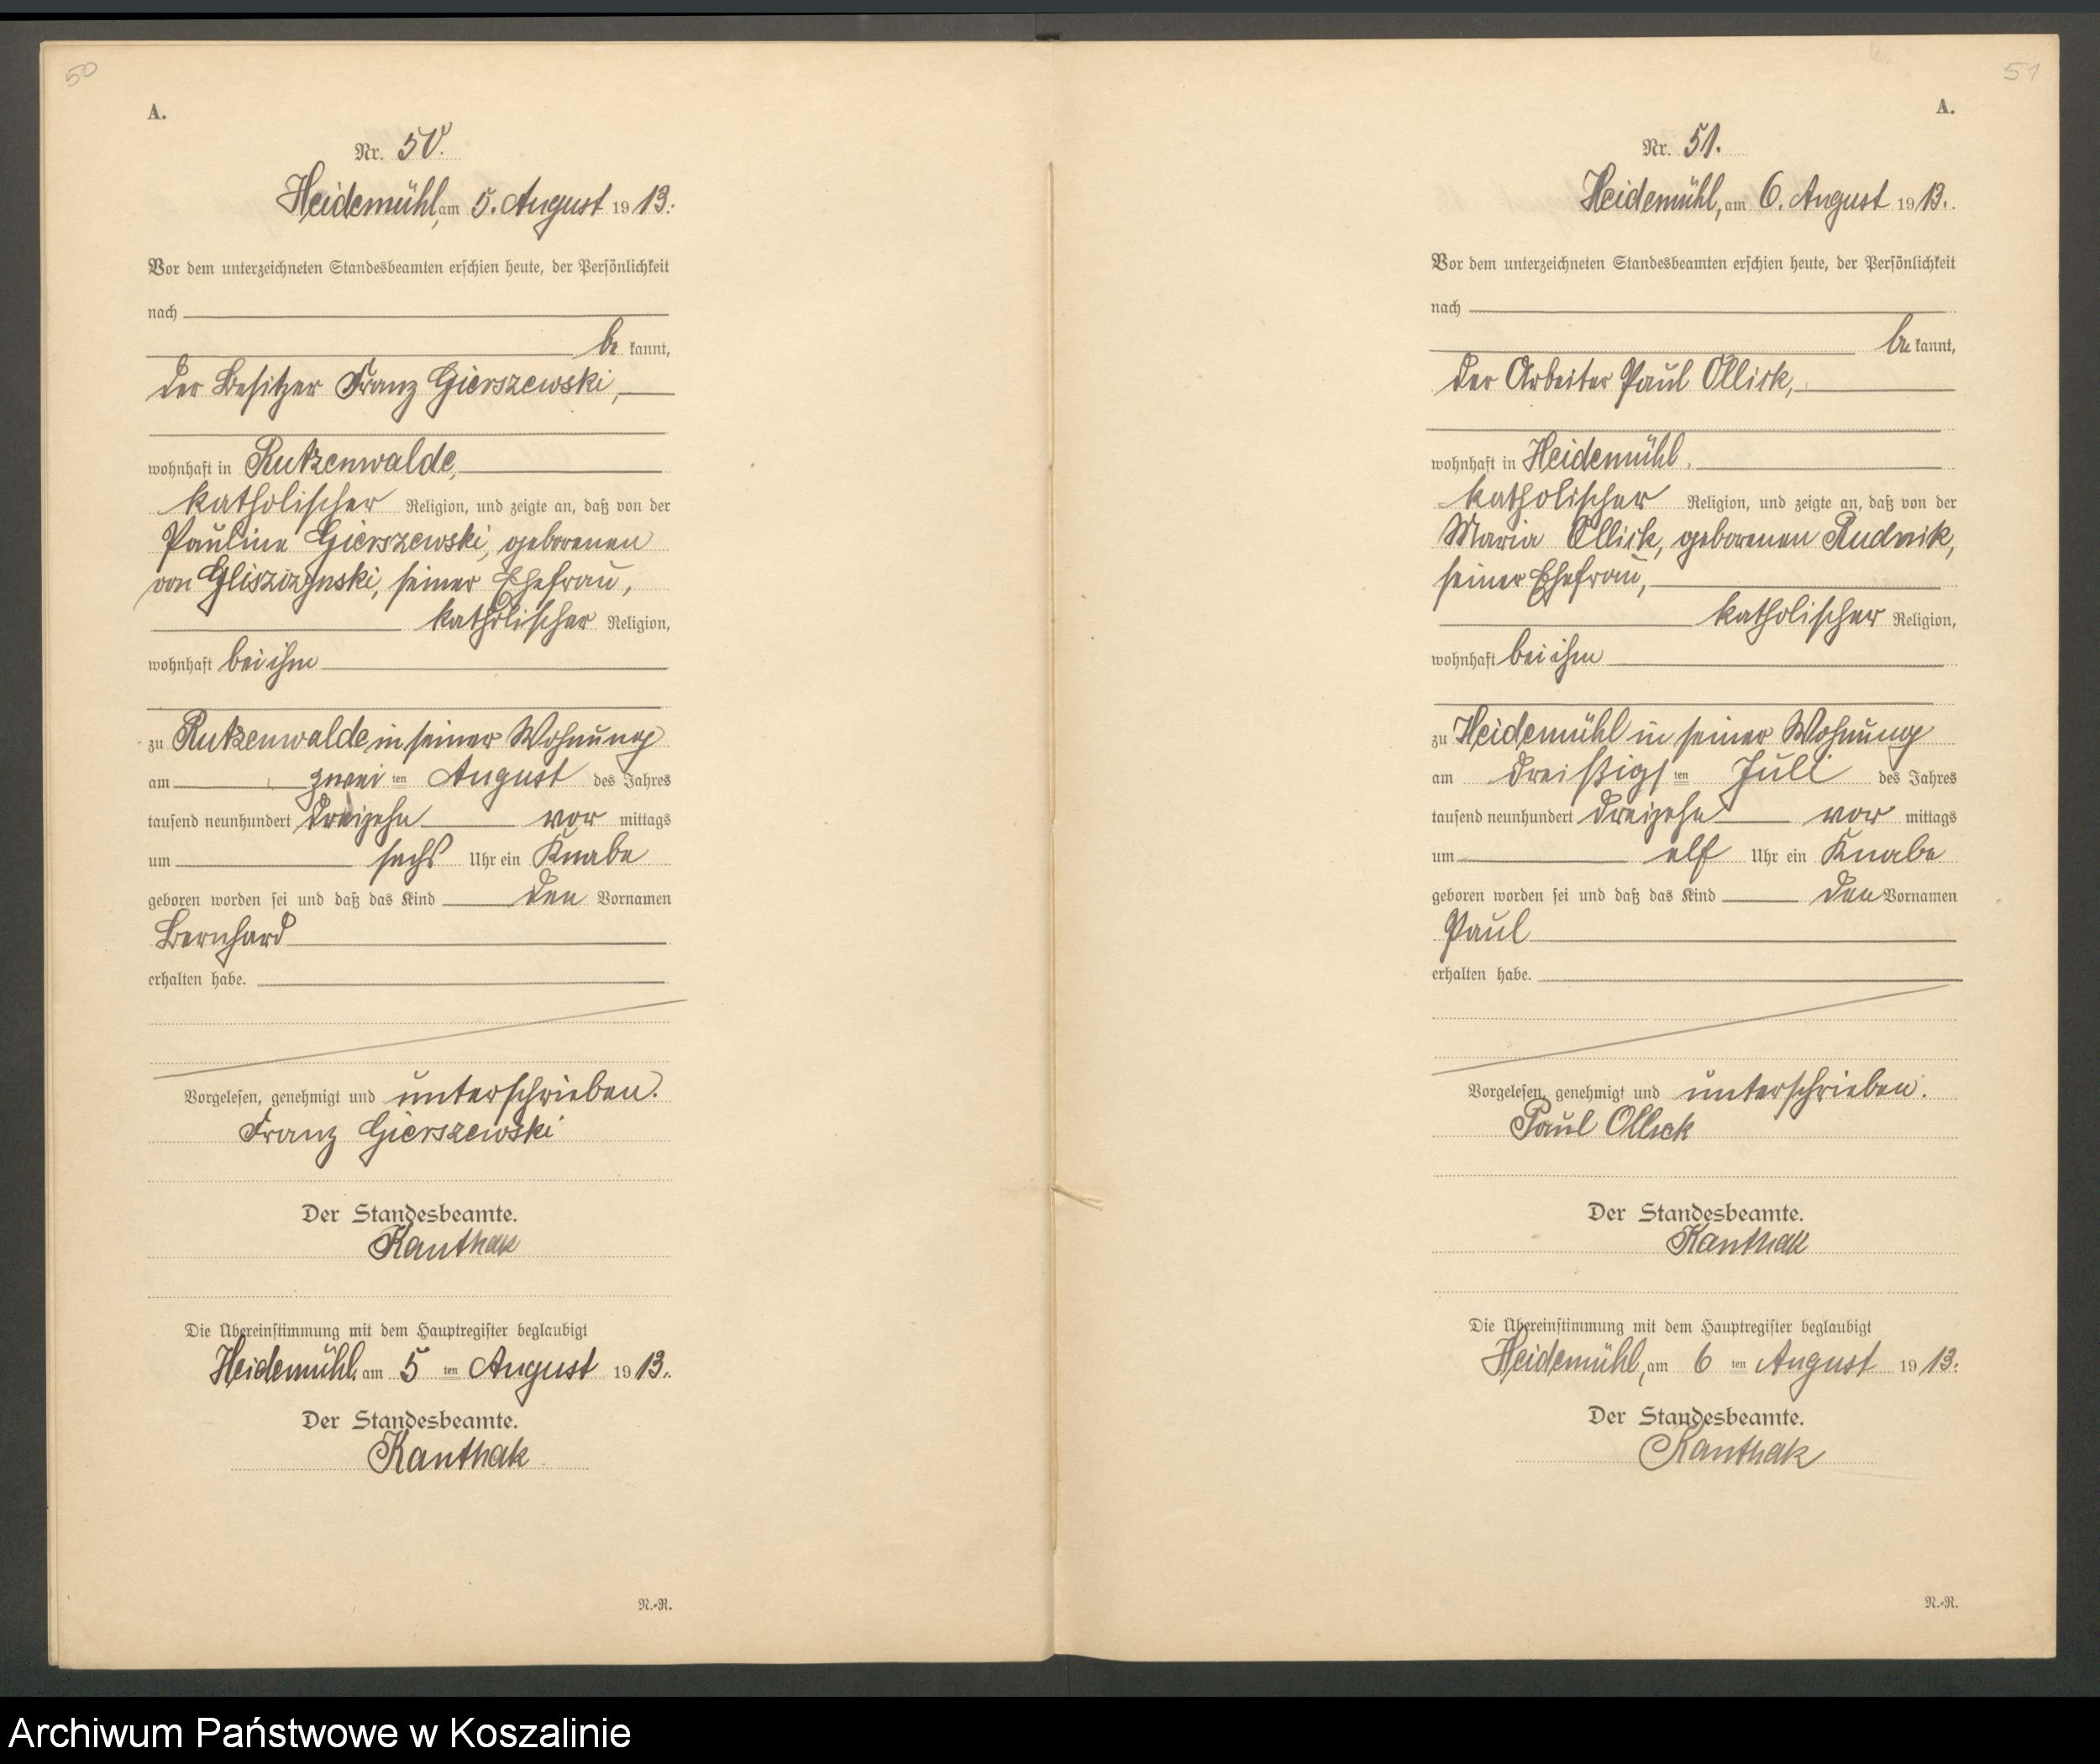 50
A.
Nr. 50.
Heidemühl, am 5. August 1913.
Vor dem unterzeichneten Standesbeamten erschien heute, der Persönlichkeit
nach
be kannt,
der Besitzer Franz Gierszewski,
wohnhaft in Rutzenwalde,
katholischer Religion, und zeigte an, daß von der
Pauline Gierszewski, geborenen
von Gliszczynski, seiner Ehefrau,
katholischer Religion,
wohnhaft bei ihm
zu Rutzenwalde in seiner Wohnung
am zwei ten August des Jahres
tausend neunhundert dreizehn vor mittags
um sechs Uhr ein Knabe
geboren worden sei und daß das Kind den Vornamen
Bernhard
erhalten habe.
Vorgelesen, genehmigt und unterschrieben.
Franz Gierszewski
Der Standesbeamte.
Kanthak
Die Übereinstimmung mit dem Hauptregister beglaubigt
Heidemühl, am 5 ten August 1913.
Der Standesbeamte.
Kanthak
N.-R.
51
A.
Nr. 51.
Heidemühl, am 6. August 1913.
Vor dem unterzeichneten Standesbeamten erschien heute, der Persönlichkeit
nach
be kannt,
der Arbeiter Paul Ollick,
wohnhaft in Heidemühl,
katholischer Religion, und zeigte an, daß von der
Maria Ollick, geborenen Rudnik,
seiner Ehefrau,
katholischer Religion,
wohnhaft bei ihm
zu Heidemühl in seiner Wohnung
am dreißigs ten Juli des Jahres
tausend neunhundert dreizehn vor mittags
um elf Uhr ein Knabe
geboren worden sei und daß das Kind den Vornamen
Paul
erhalten habe.
Vorgelesen, genehmigt und unterschrieben.
Paul Ollick
Der Standesbeamte.
Kanthak
Die Übereinstimmung mit dem Hauptregister beglaubigt
Heidemühl, am 6 ten August 1913.
Der Standesbeamte.
Kanthak
N.-R.
Archiwum Państwowe w Koszalinie